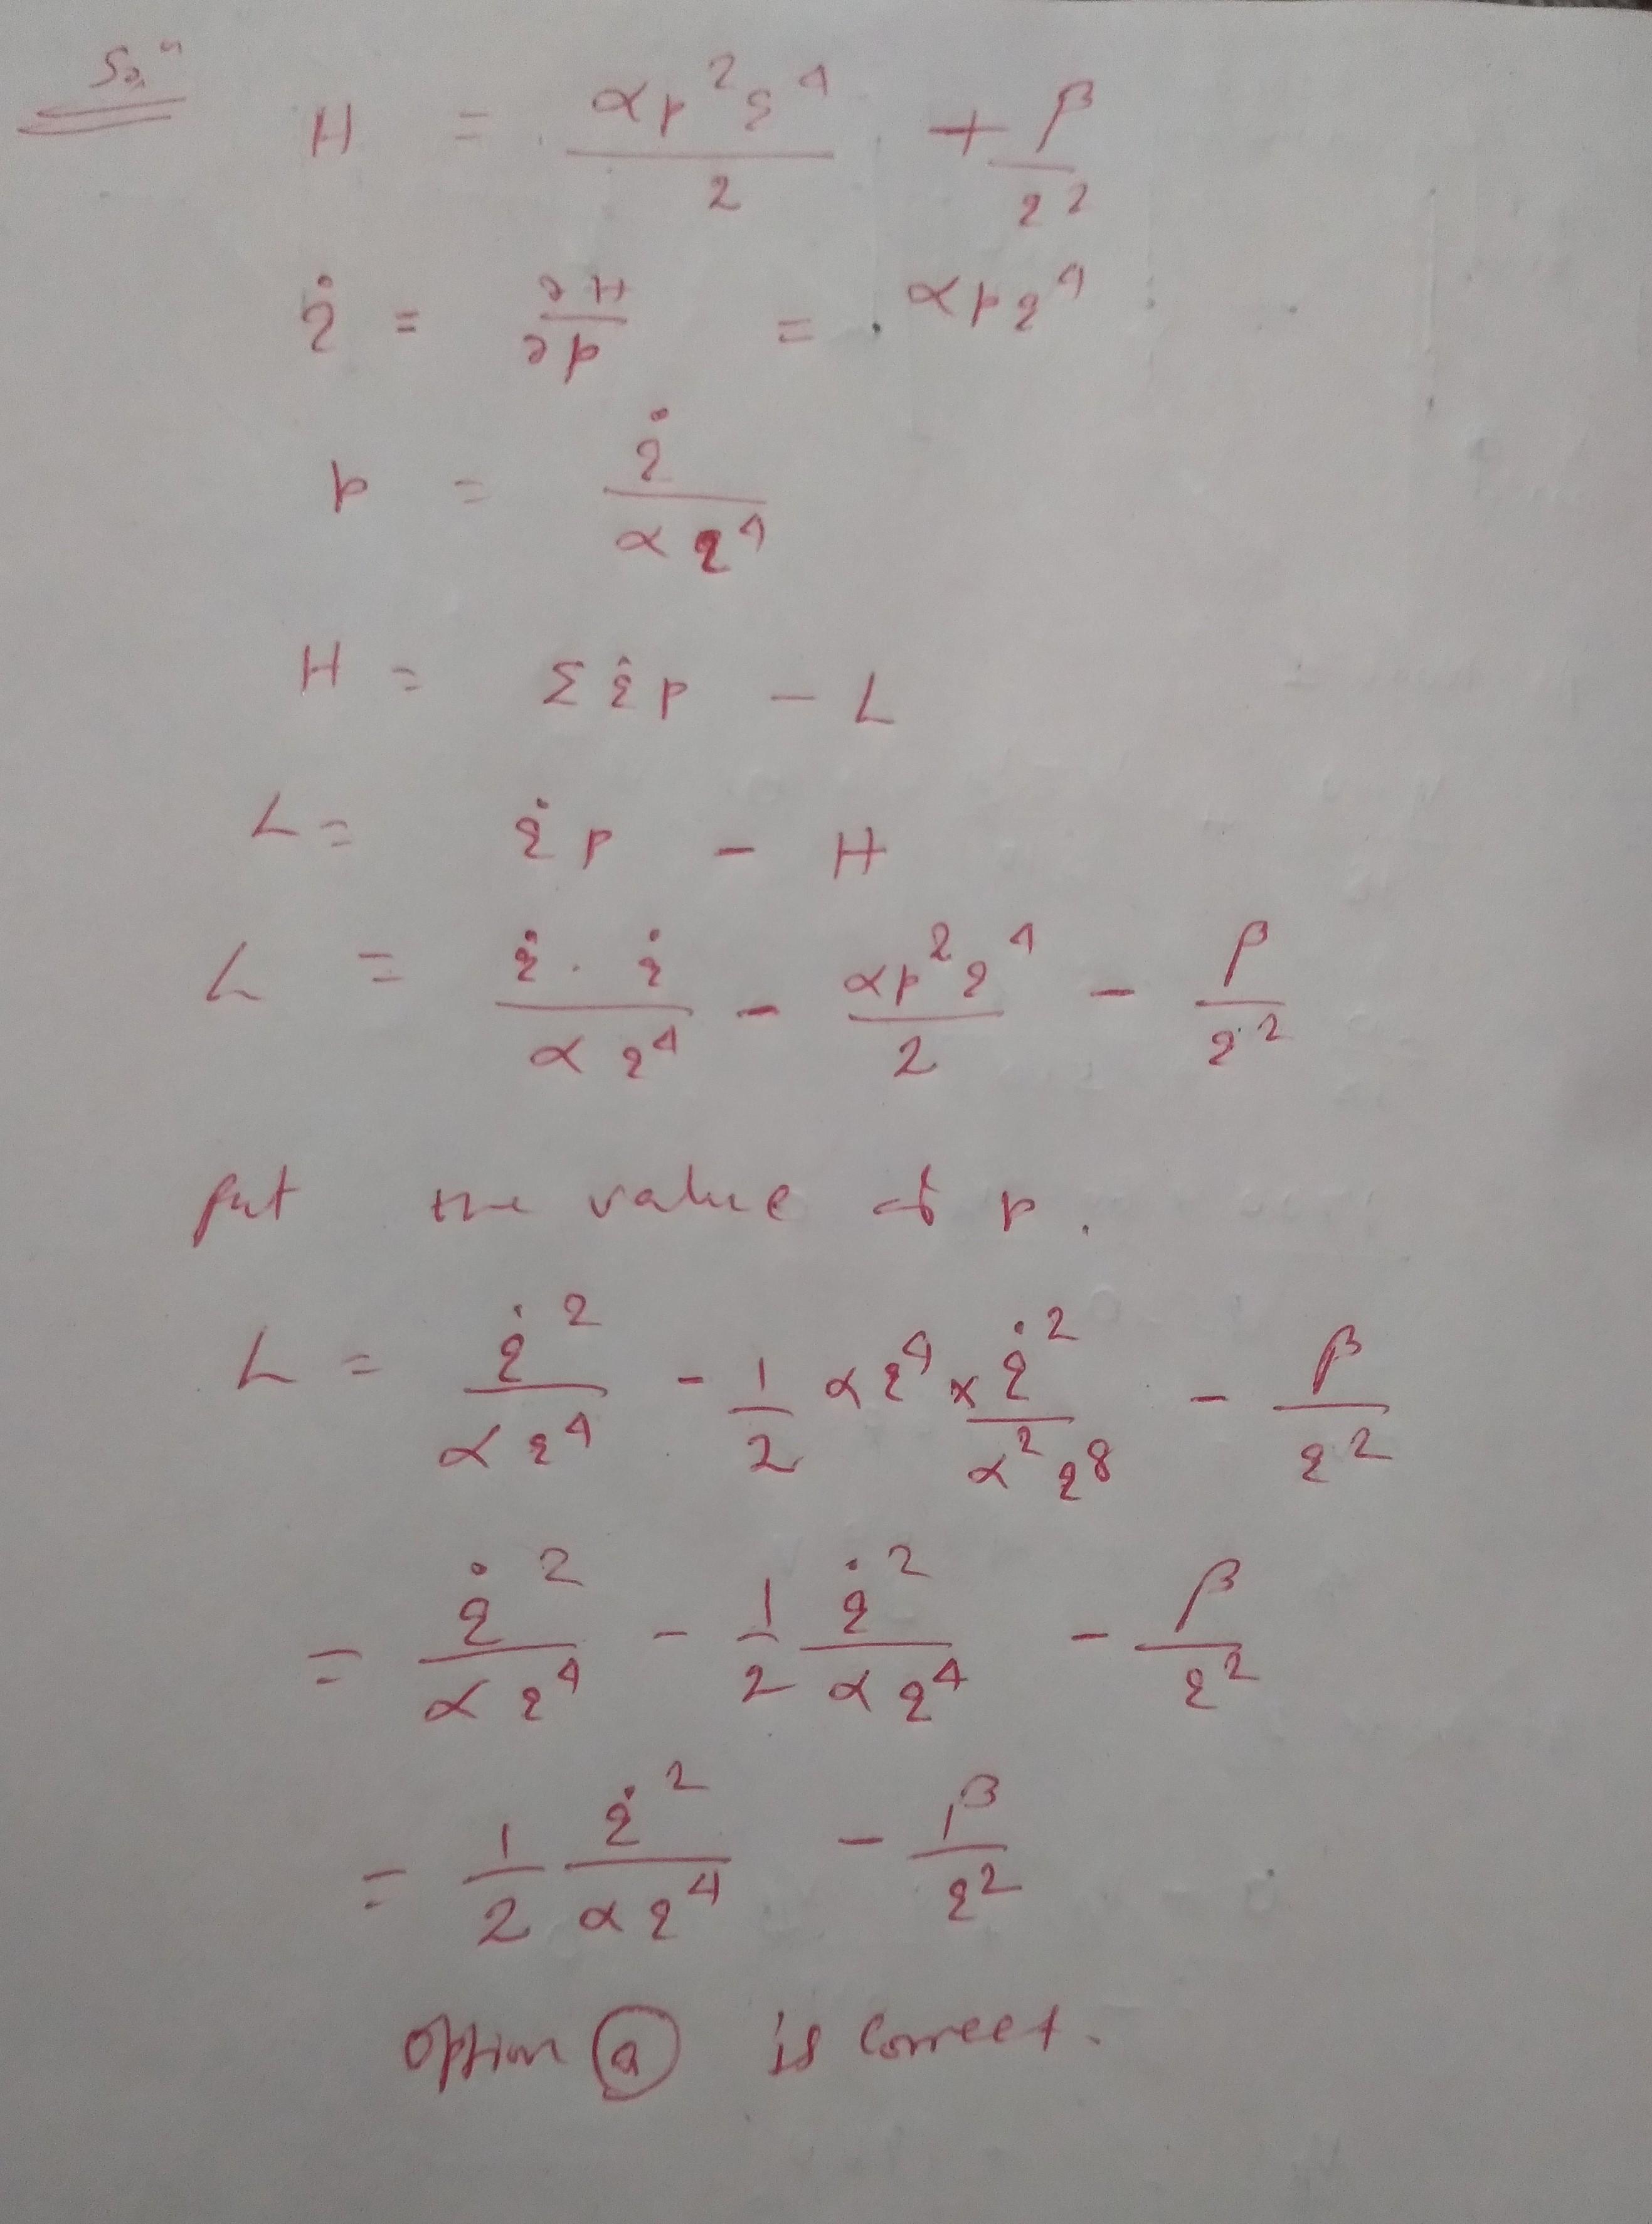 Solⁿ
H = αp²q⁴/2 + β/q²
q̇ = ∂H/∂p = αpq⁴
p = q̇/αq⁴
H = Σq̇p - L
L = q̇p - H
L = q̇·q̇/αq⁴ - αp²q⁴/2 - β/q²
put the value of p.
L = q̇²/αq⁴ - 1/2 αq⁴ × q̇²/α²q⁸ - β/q²
= q̇²/αq⁴ - 1/2 q̇²/αq⁴ - β/q²
= 1/2 q̇²/αq⁴ - β/q²
option (a) is correct.